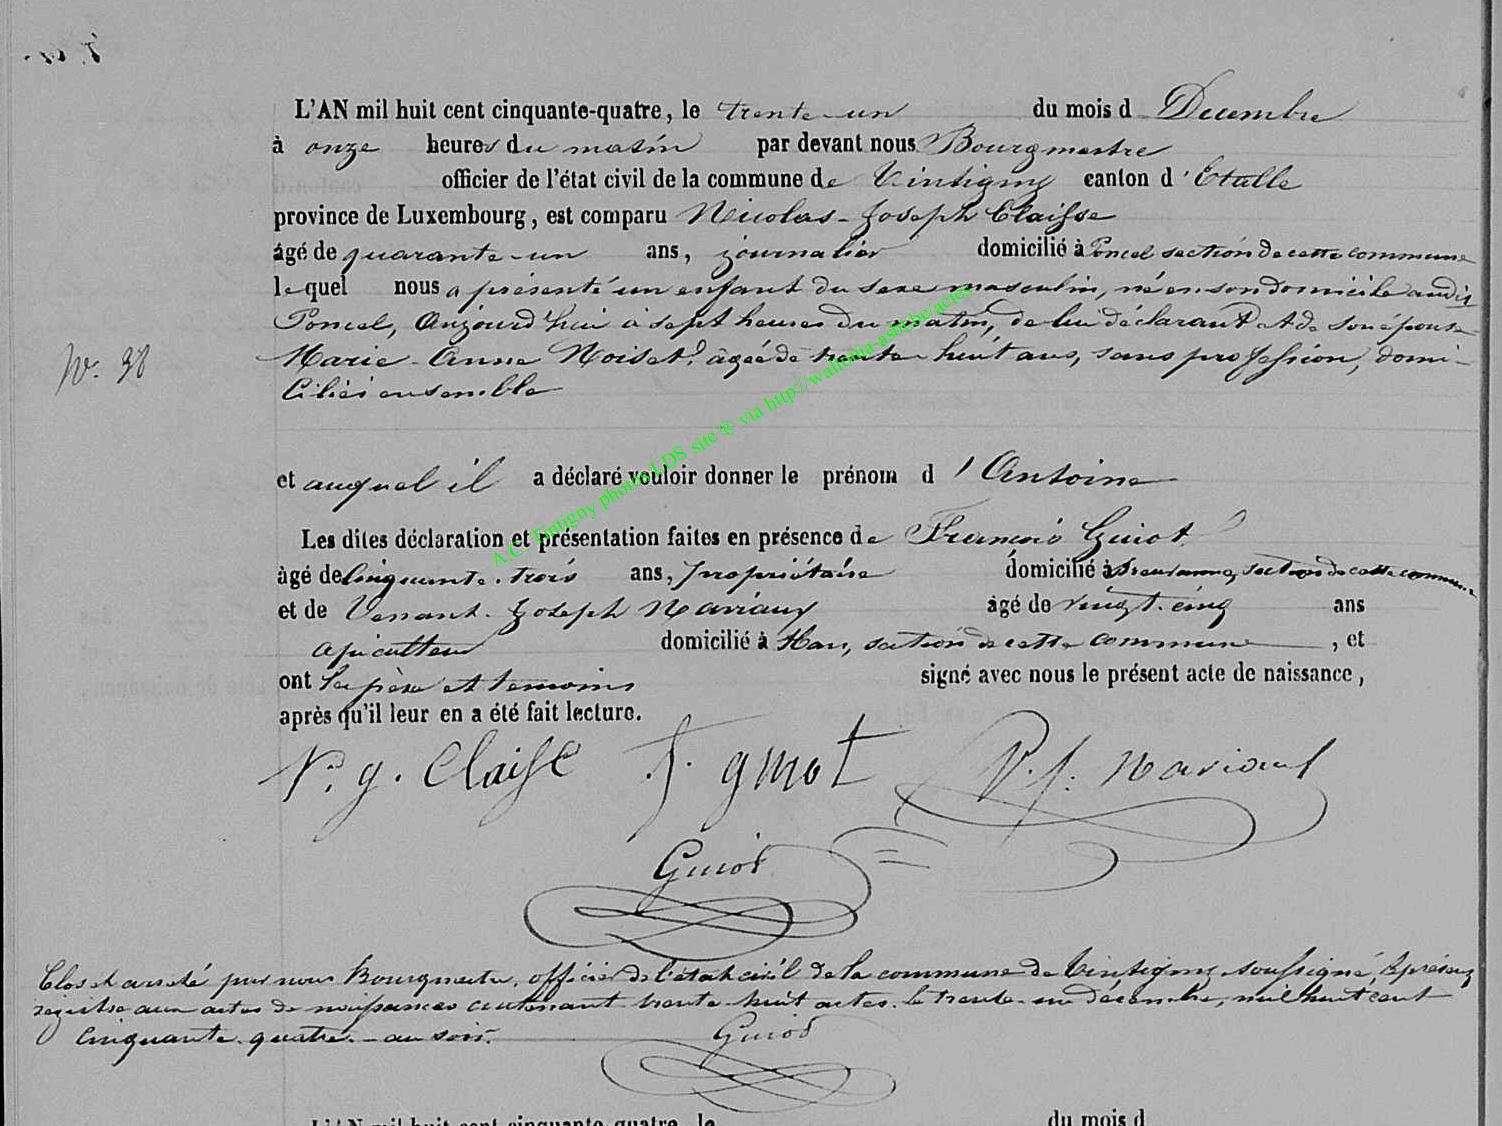 L'AN mil huit cent cinquante-quatre, le trente-un du mois d Decembre
à onze heures du matin par devant nous Bourgmestre
officier de l'état civil de la commune de Tintigny canton d'Etalle
province de Luxembourg, est comparu Nicolas-Joseph Claisse
âgé de quarante-un ans, journalier domicilié à Poncel section de cette commune
lequel nous a présenté un enfant du sexe masculin, né en son domicile audit
Poncel, Aujourd'hui à sept heures du matin, de lui déclarant et de son épouse
Marie-Anne Noiset, âgée de trente huit ans, sans profession, domi-
N°. 38
ciliés ensemble
et auquel il a déclaré vouloir donner le prénom d'Antoine
Les dites déclaration et présentation faites en présence de François Guiot
âgé de cinquante-trois ans, propriétaire domicilié à section de cette commune
et de Venant-Joseph Mariaux âgé de vingt-cinq ans
domicilié à Han, section de cette commune, et
ont les père et temoins signé avec nous le présent acte de naissance,
après qu'il leur en a été fait lecture.
N. J. Claisse F. Guiot V. J. Mariaux
Guiot
Clos et arreté par nous Bourgmestre, officier de l'état civil de la commune de Tintigny soussigné le présent
registre aux actes de naissances contenant trente-huit actes. Le trente-un décembre, mil huit cent
cinquante-quatre.-au soir.
Guiot
L'AN mil huit cent cinquante-quatre, le du mois d
A.C. Tintigny photos LDS site ® via http://wallonia-asbl.be/actes